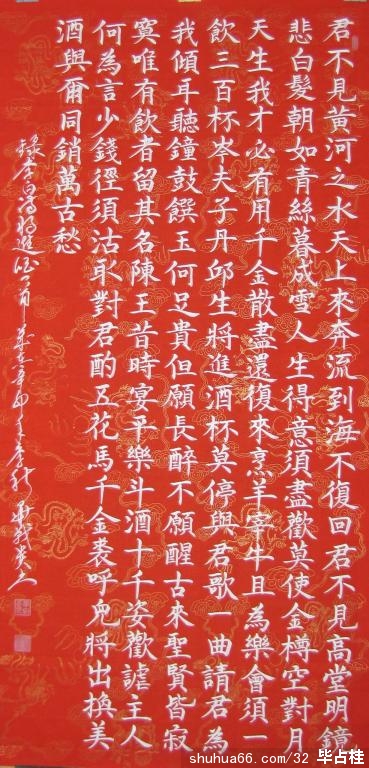 君不見黃河之水天上來奔流到海不復回君不見高堂明鏡
悲白髮朝如青絲暮成雪人生得意須盡歡莫使金樽空對月
天生我才必有用千金散盡還復來烹羊宰牛且為樂會須一
飲三百杯岑夫子丹邱生將進酒杯莫停與君歌一曲請君為
我傾耳聽鐘鼓饌玉何足貴但願長醉不願醒古來聖賢皆寂
寞唯有飲者留其名陳王昔時宴平樂斗酒十千姿歡謔主人
何為言少錢徑須沽取對君酌五花馬千金裘呼兒將出換美
酒與爾同銷萬古愁
錄李白詩將進酒一首
shuhua66.com/32 毕占桂